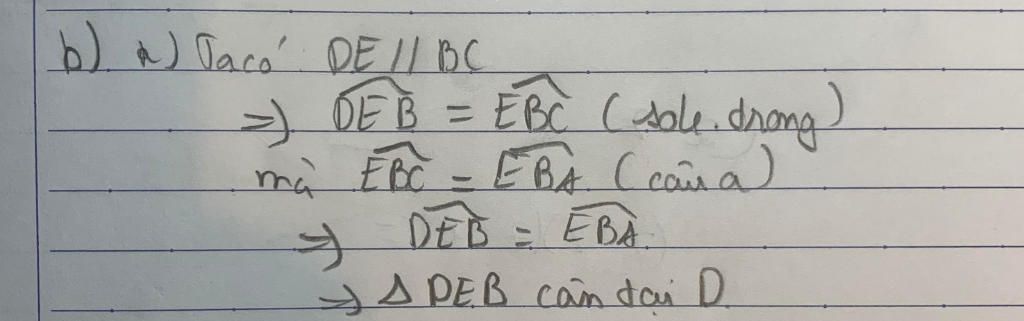 b) a) Ta có DE // BC
=> \widehat{DEB} = \widehat{EBC} (sole.trong)
mà \widehat{EBC} = \widehat{EBA} (câu a)
=> \widehat{DEB} = \widehat{EBA}
=> Δ DEB cân tại D